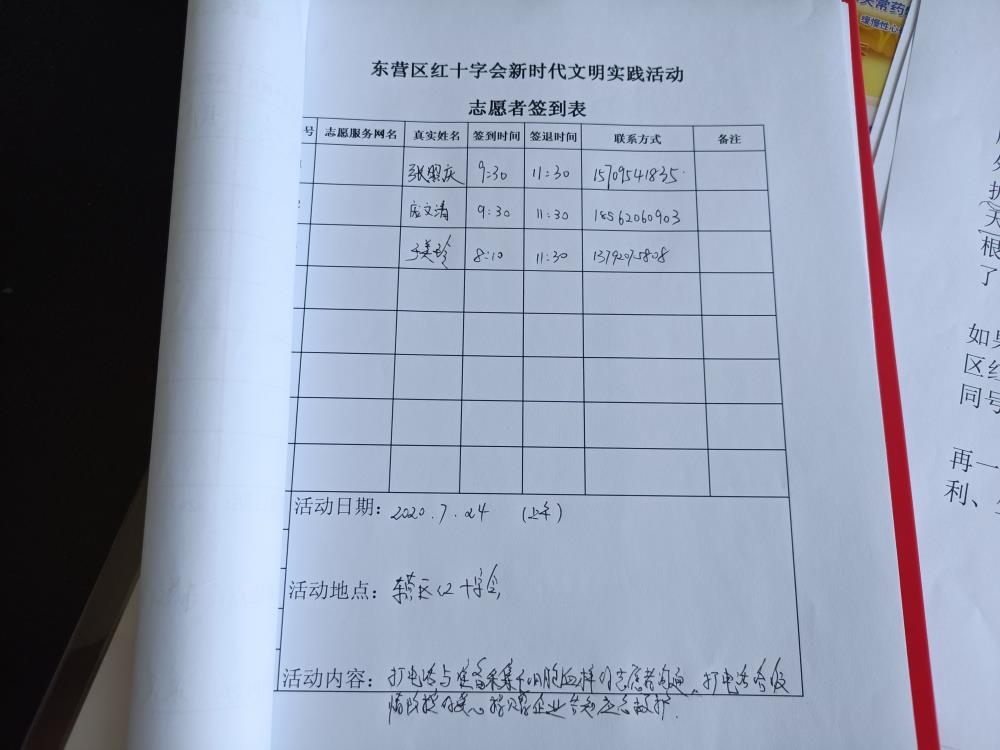 东营区红十字会新时代文明实践活动
志愿者签到表
号 志愿服务网名 真实姓名 签到时间 签退时间 联系方式 备注
张照庆 9:30 11:30 15709541835
庞文清 9:30 11:30 18562060903
于美玲 8:10 11:30 13792075808
活动日期: 2020.7.24 (上午)
活动地点: 东营区红十字会
活动内容: 打电话与准备采集干细胞血样的志愿者沟通、打电话给疫
情防控的爱心捐赠企业
常药
慢性心
天
根
了
如果
区红
同号
再一
利、